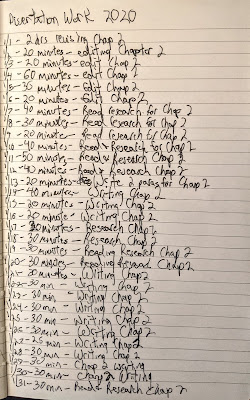 Dissertation Work 2020
1 - 2 hrs Revising Chap 2
2 - 20 minutes - editing Chapter 2
3 - 20 minutes - edit Chap 2
4 - 60 minutes - edit Chap 2
5 - 30 minutes - edit Chap 2
6 - 20 minutes - Edit Chap 2
7 - 40 minutes - Read research for Chap 2
8 - 30 minutes - Read Research for Chap 2
9 - 20 minutes - Read Research for Chap 2
10 - 40 minutes - Read Research for Chap 2
11 - 50 minutes - Read Research Chap 2
12 - 40 minutes - Read Research Chap 2
13 - 20 minutes - Write 2 paras for Chap 2
14 - 40 minutes - Writing Chap 2
15 - 20 minutes - Writing Chap 2
16 - 20 minutes - Writing Chap 2
17 - 30 minutes - Research Chap 2
18 - 30 minutes - Research Chap 2
19 - 30 minutes - Reading Research Chap 2
20 - 30 minutes - Reading Research Chap 2
21 - 20 minutes - Writing Chap 2
22 - 30 min - Writing Chap 2
23 - 30 min - Writing Chap 2
24 - 30 min - Writing Chap 2
25 - 30 min - Writing Chap 2
26 - 30 min - Writing Chap 2
27 - 25 min - Writing Chap 2
28 - 30 min - Writing Chap 2
29 - 30 min - Chap 2 Writing
30 - 30 min - Chap 2 Writing
31 - 30 min - Read Research Chap 2